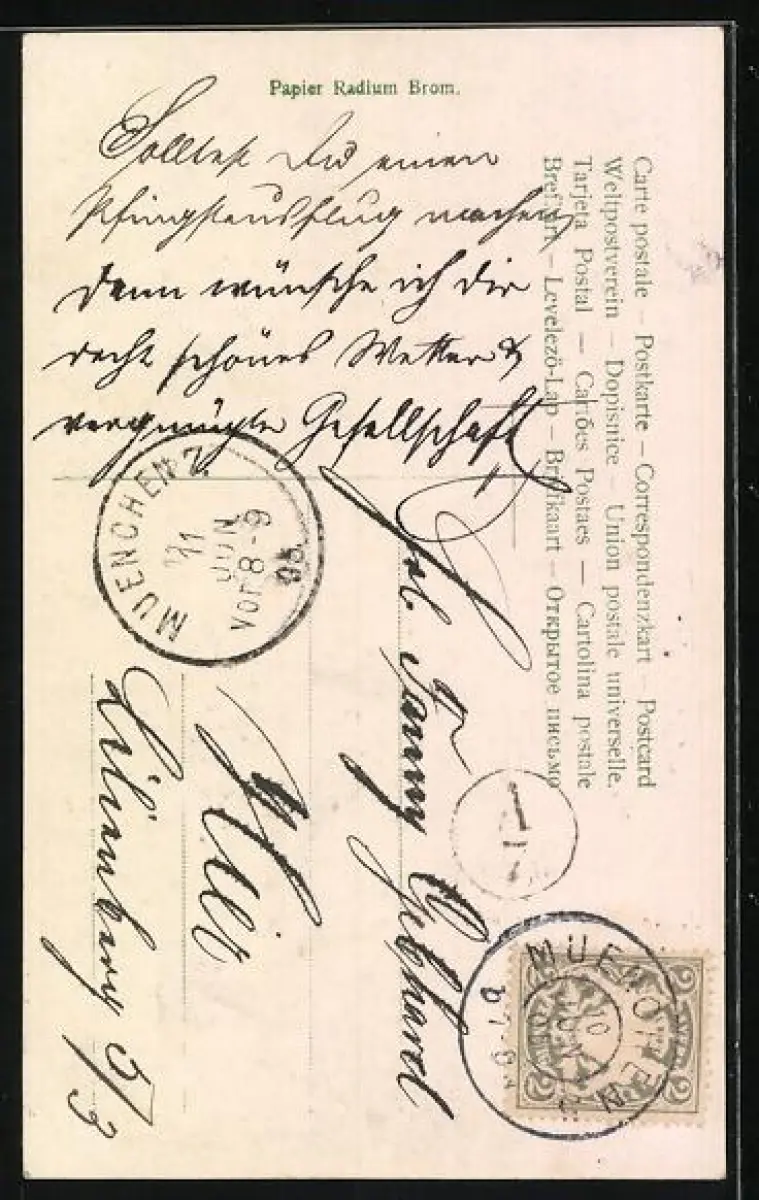 Papier Radium Brom.
Solltest Du einen
Pfingstausflug machen
dann wünsche ich Dir
recht schönes Wetter &
vergnügte Gesellschaft
Carte postale – Postkarte – Correspondenzkart – Postcard
Weltpostverein – Dopisnice – Union postale universelle.
Tarjeta Postal — Cartões Postaes — Cartolina postale
Brefkort – Levelező-Lap – Briefkaart – Открытое письмо
Frl. Fanny Gebhard
Hier
Lilienberg 5/3
MUENCHEN 2.
11
JUN
Vor 8-9
05.
MUENCHEN
10
JUN
2 2
2 2